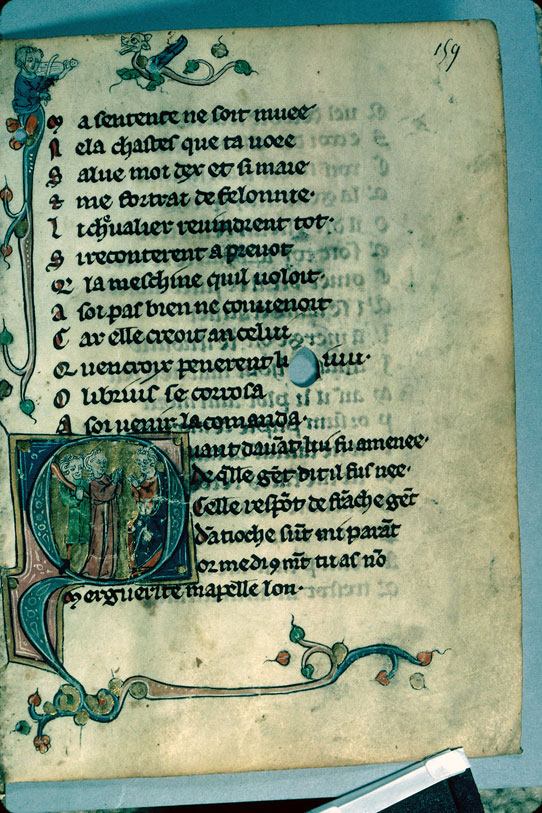 159
A a sentence ne soit muee
I ela chastes que ta uoee
S alue moi dex et si maie
⁊ me fortrai de felonnie.
L i chr̄ualier reuindrent tot.
S i reconterent a preuot
Q̄ la meschine quil uoloit.
A soi pas bien ne conuenoit
C ar elle creoit an celui
Q uen croix penerent li iuiu.
O libriuis se corrosa
A soi uenir la comanda.
Quant dauāt lui fu amenee.
De q̄lle gēt dit il fus nee.
Celle respōt de frāche gēt
Dātioche sūt mi parāt
Or me di 9mt̄ tu as nō
Merguerite mapelle lon.